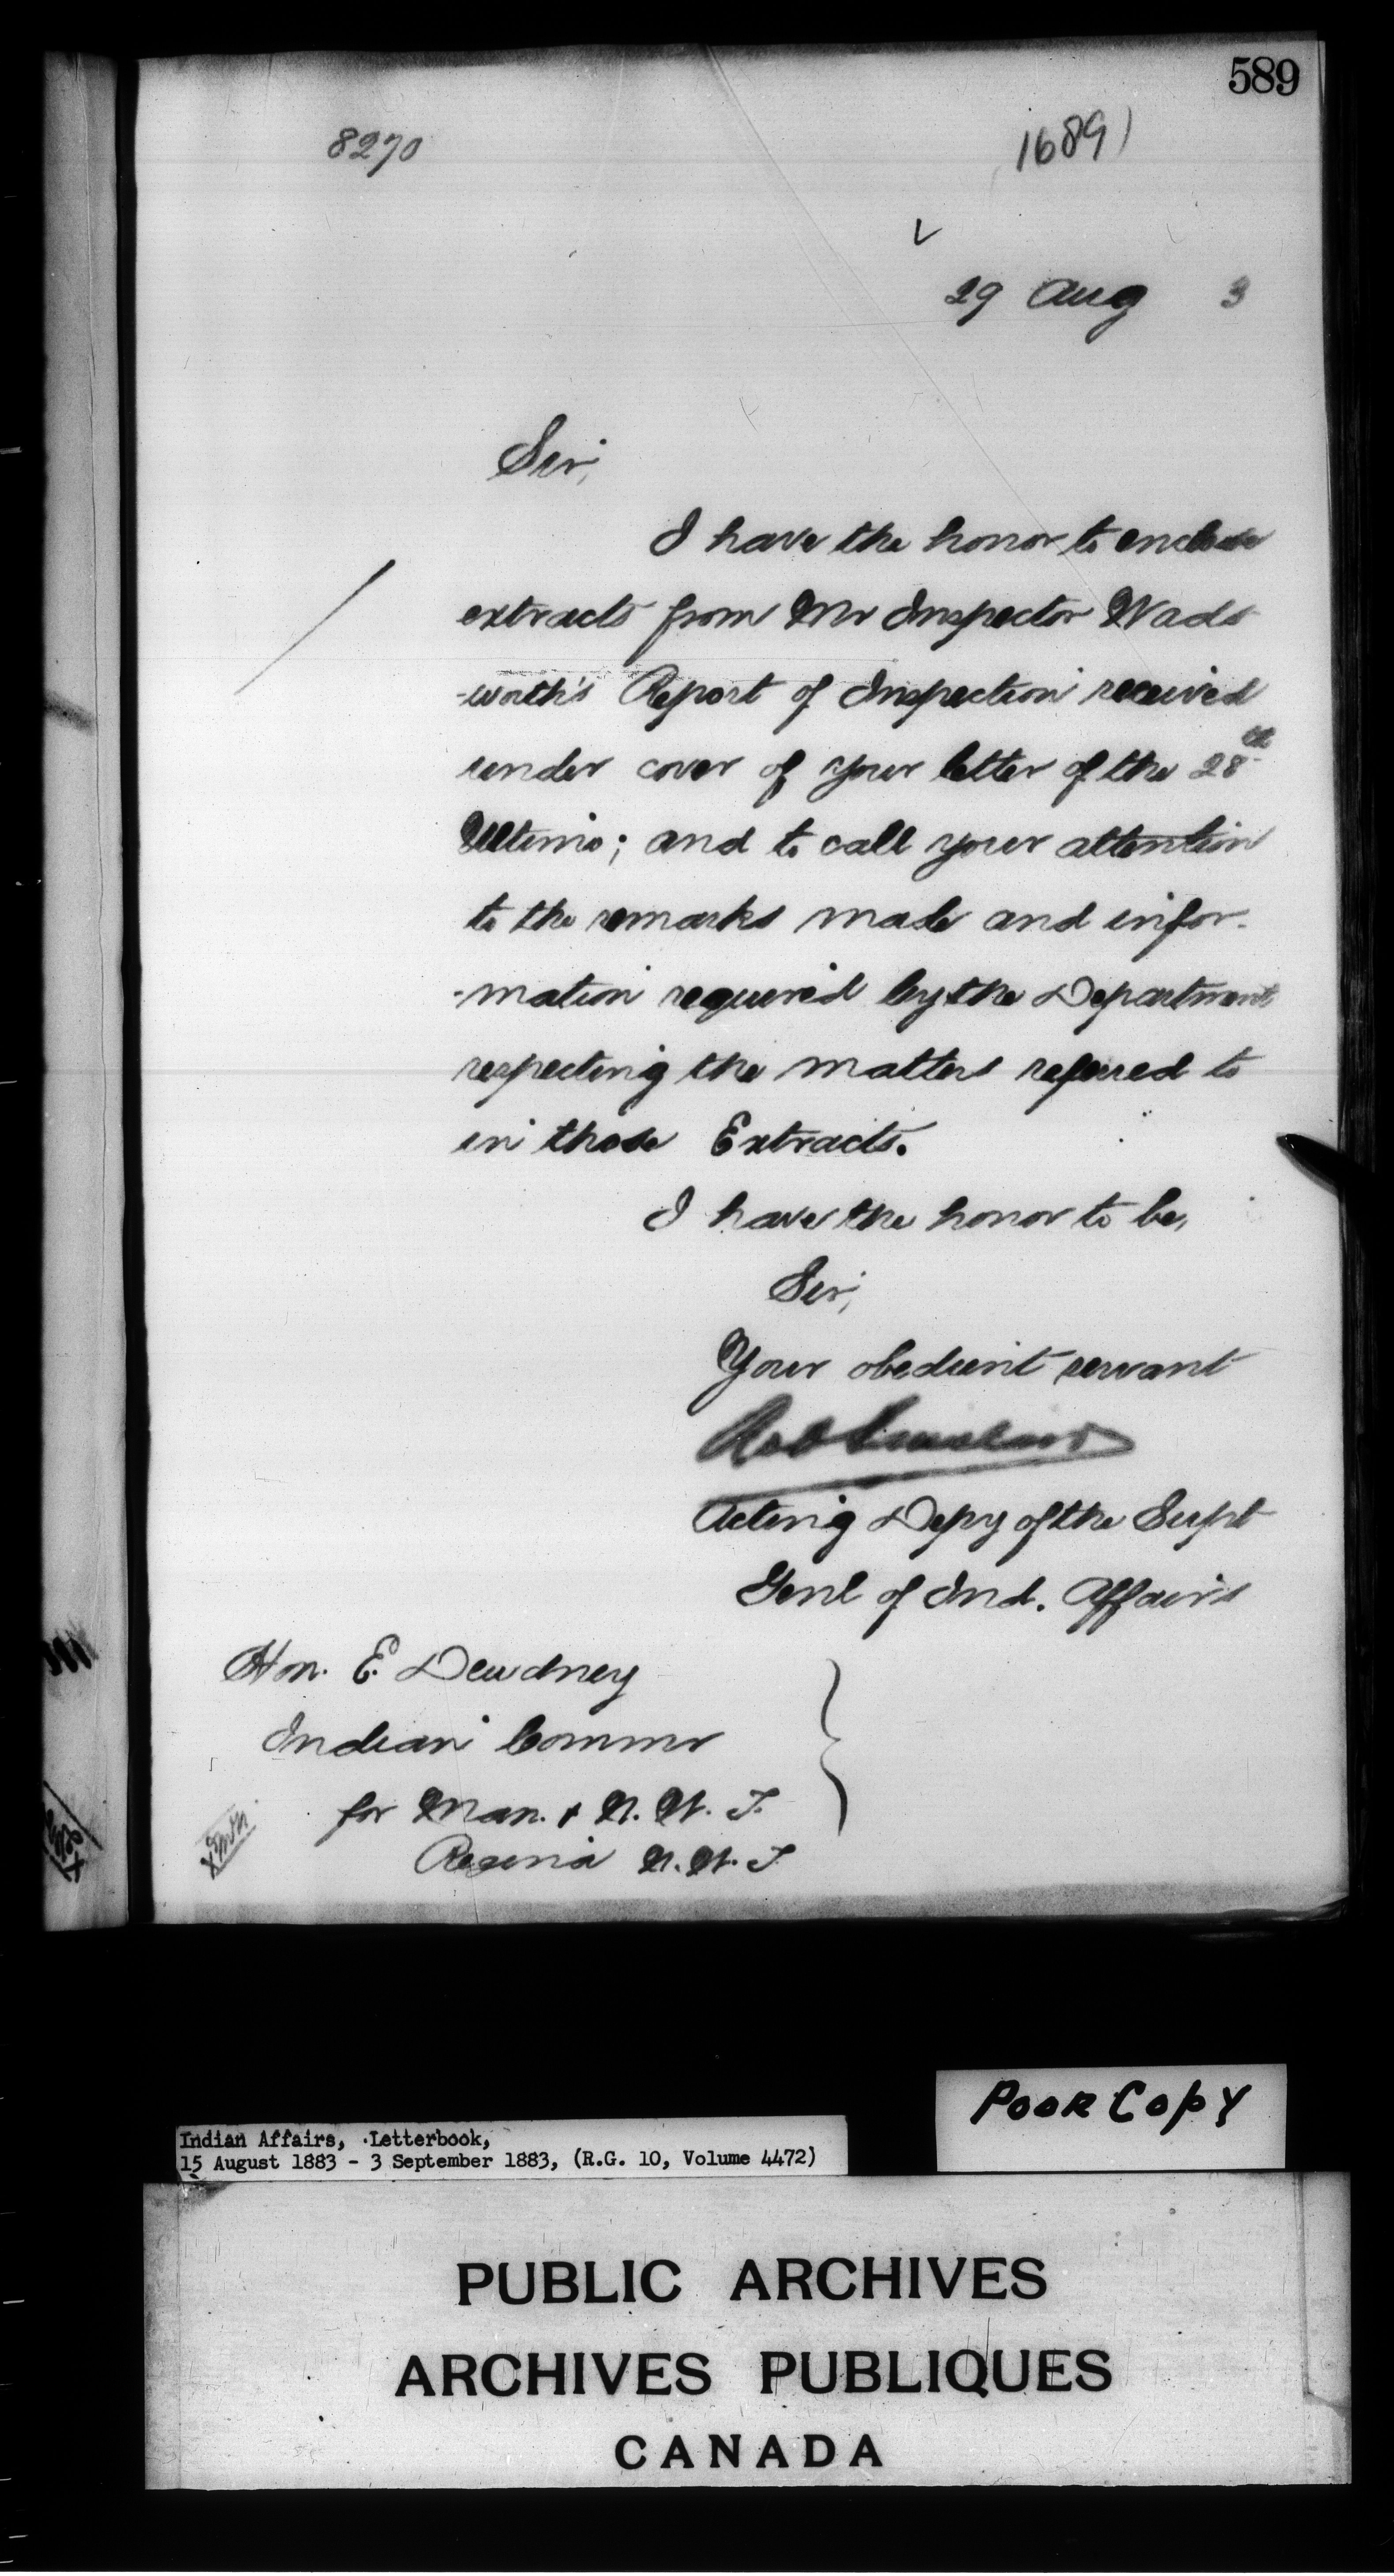 589
8270
1689)
29 Aug 3
Sir,
I have the honor to enclose
extracts from Mr Inspector Wads
-worth's Report of Inspection received
under cover of your letter of the 28th
Ultimo; and to call your attention
to the remarks made and infor-
-mation required by the Department
respecting the matters referred to
in those Extracts.
I have the honor to be,
Sir,
Your obedient servant
Acting Depy of the Supt
Genl of Ind. Affairs
Hon. E. Dewdney
Indian Commr
for Man. & N. W. T.
Regina N. W. T
Poor Copy
Indian Affairs, Letterbook,
15 August 1883 - 3 September 1883, (R.G. 10, Volume 4472)
PUBLIC ARCHIVES
ARCHIVES PUBLIQUES
CANADA